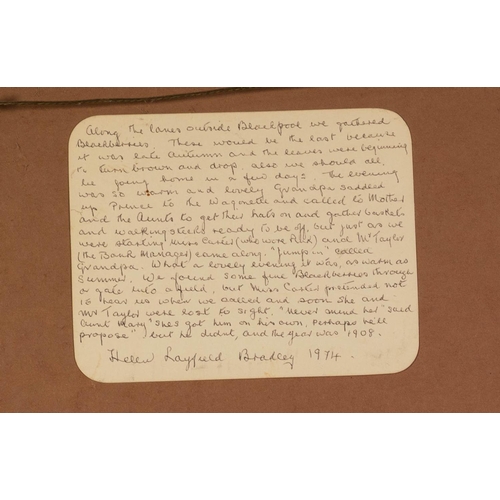 Along the lanes outside Blackpool we gathered
Blackberries. These would be the last because
it was late Autumn and the leaves were beginning
to turn brown and drop, also we should all,
be going home in a few days. The evening
was so warm and lovely Grandpa saddled
up Prince to the Wagonette and called to Mother
and the Aunts to get their hats on and gather baskets
and walking sticks ready to be off, but just as we
were starting Miss Carter (who wore Pink) and Mr Taylor
(the Bank Manager) came along. "Jump in" called
Grandpa. What a lovely evening it was, as warm as
Summer. We found some fine Blackberries through
a gate into a field, but Miss Carter pretended not
to hear us when we called and soon she and
Mr Taylor were lost to sight. "Never mind her" said
Aunt Mary "She's got him on his own, perhaps he'll
propose", but he didn't, and the year was 1908.
Helen Layfield Bradley 1974.